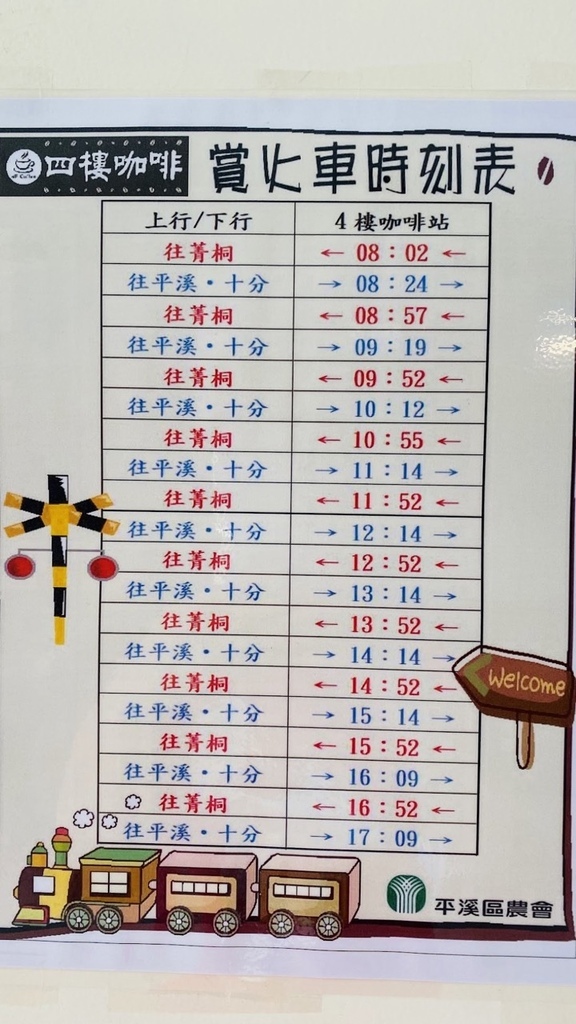 四樓咖啡 賞火車時刻表
4F Coffee
上行/下行 4樓咖啡站
往菁桐 ← 08：02 ←
往平溪・十分 → 08：24 →
往菁桐 ← 08：57 ←
往平溪・十分 → 09：19 →
往菁桐 ← 09：52 ←
往平溪・十分 → 10：12 →
往菁桐 ← 10：55 ←
往平溪・十分 → 11：14 →
往菁桐 ← 11：52 ←
往平溪・十分 → 12：14 →
往菁桐 ← 12：52 ←
往平溪・十分 → 13：14 →
往菁桐 ← 13：52 ←
往平溪・十分 → 14：14 →
往菁桐 ← 14：52 ←
往平溪・十分 → 15：14 →
往菁桐 ← 15：52 ←
往平溪・十分 → 16：09 →
往菁桐 ← 16：52 ←
往平溪・十分 → 17：09 →
Welcome
平溪區農會